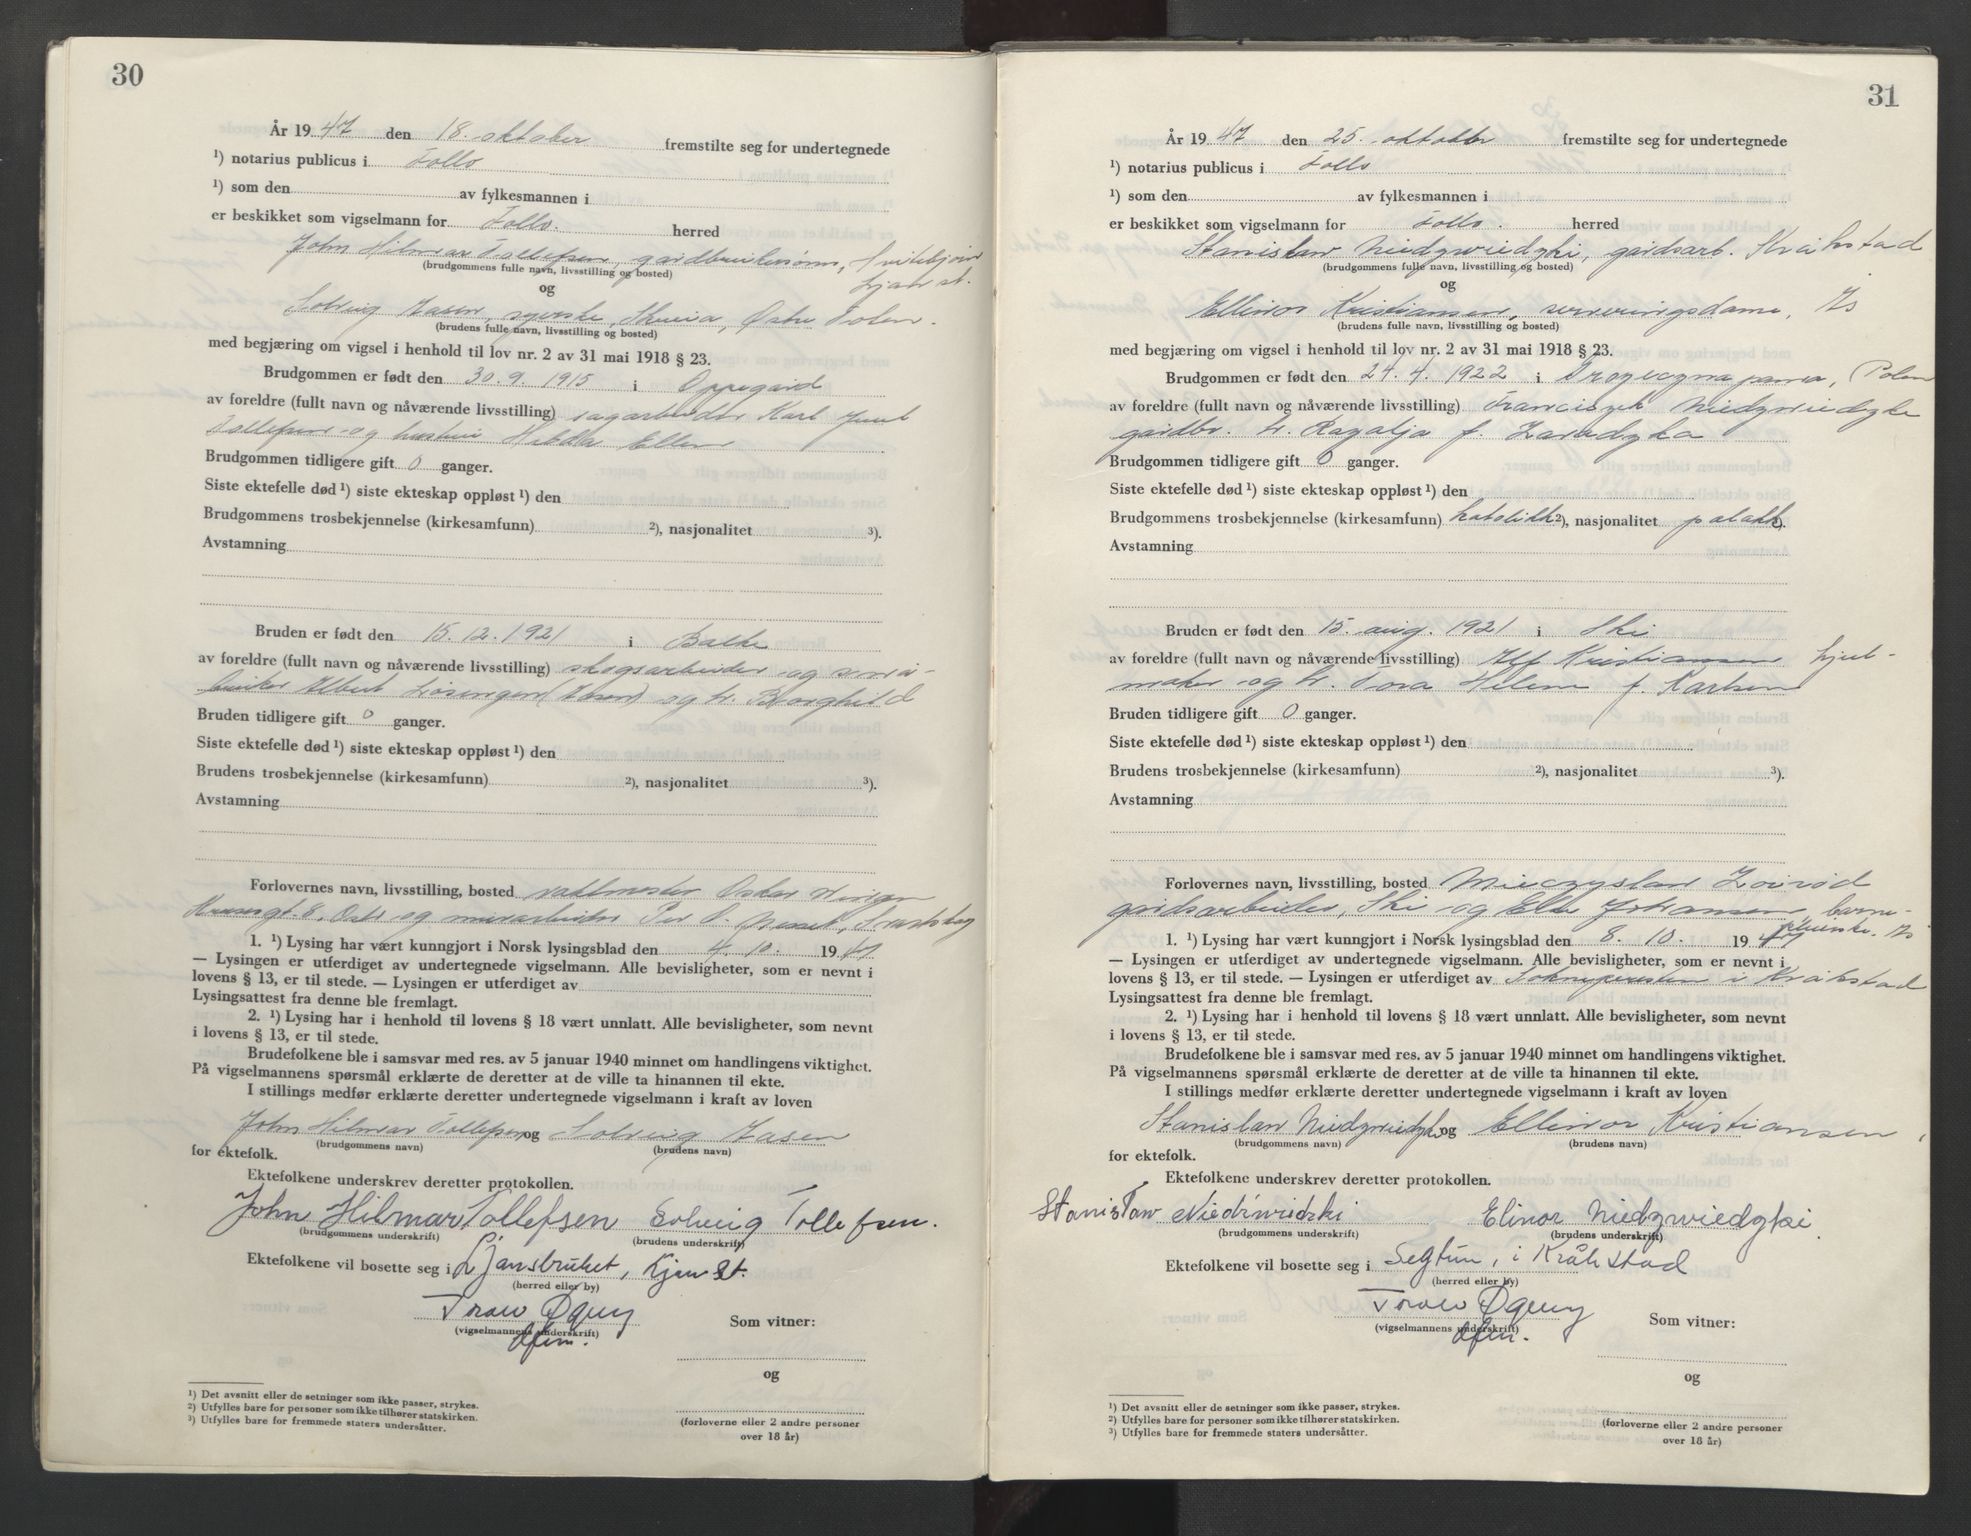 30
År 19 47 den 18. oktober fremstilte seg for undertegnede
¹) notarius publicus i Follo
¹) som den av fylkesmannen i
er beskikket som vigselmann for Follo. herred
John Hilmar Tollefsen, gardbrukersønn,
(brudgommens fulle navn, livsstilling og bosted)
og
Solveig Zasen, syerske, Skreia, Østre Toten.
(brudens fulle navn, livsstilling og bosted)
med begjæring om vigsel i henhold til lov nr. 2 av 31 mai 1918 § 23.
Brudgommen er født den 30.9.1915 i Oppegård
av foreldre (fullt navn og nåværende livsstilling) sagarbeider Karl Juul
Tollefsen og hustru Hilda Ellen
Brudgommen tidligere gift 0 ganger.
Siste ektefelle død ¹) siste ekteskap oppløst ¹) den
Brudgommens trosbekjennelse (kirkesamfunn) ²), nasjonalitet ³).
Avstamning
Bruden er født den 15.12.1921 i Balke
av foreldre (fullt navn og nåværende livsstilling) skogsarbeider og små-
bruker Albert og h. Borghild
Bruden tidligere gift 0 ganger.
Siste ektefelle død ¹) siste ekteskap oppløst ¹) den
Brudens trosbekjennelse (kirkesamfunn) ²), nasjonalitet ³).
Avstamning
Forlovernes navn, livsstilling, bosted vaktmester Oskar
8, Oslo og murarbeider Per O.
1. ¹) Lysing har vært kunngjort i Norsk lysingsblad den 4. 10. 19 47
— Lysingen er utferdiget av undertegnede vigselmann. Alle bevisligheter, som er nevnt i
lovens § 13, er til stede. — Lysingen er utferdiget av
Lysingsattest fra denne ble fremlagt.
2. ¹) Lysing har i henhold til lovens § 18 vært unnlatt. Alle bevisligheter, som nevnt
i lovens § 13, er til stede.
Brudefolkene ble i samsvar med res. av 5 januar 1940 minnet om handlingens viktighet.
På vigselmannens spørsmål erklærte de deretter at de ville ta hinannen til ekte.
I stillings medfør erklærte deretter undertegnede vigselmann i kraft av loven
John Hilmar Tollefsen og Solveig Zasen
(brudgommens navn) (brudens navn)
for ektefolk.
Ektefolkene underskrev deretter protokollen.
John Hilmar Tollefsen Solveig Tollefsen.
(brudgommens underskrift) (brudens underskrift)
Ektefolkene vil bosette seg i Ljansbruket, Ljan st.
(herred eller by)
(vigselmannens underskrift) Som vitner:
og
¹) Det avsnitt eller de setninger som ikke passer, strykes.
²) Utfylles bare for personer som ikke tilhører statskirken.
³) Utfylles bare for fremmede staters undersåtter.
(forloverne eller 2 andre personer
over 18 år)
31
År 19 47 den 25. oktober fremstilte seg for undertegnede
¹) notarius publicus i Follo
¹) som den av fylkesmannen i
er beskikket som vigselmann for Follo. herred
Stanislaw Niedzwiedzki, gardsarb. Kråkstad
(brudgommens fulle navn, livsstilling og bosted)
og
Ellinor Kristiansen, serveringsdame, Ås
(brudens fulle navn, livsstilling og bosted)
med begjæring om vigsel i henhold til lov nr. 2 av 31 mai 1918 § 23.
Brudgommen er født den 24.4.1922 i (Polen
av foreldre (fullt navn og nåværende livsstilling) Franciszek Niedzwiedzke
gardbr. h. Razalja f. Zavadzka
Brudgommen tidligere gift 0 ganger.
Siste ektefelle død ¹) siste ekteskap oppløst ¹) den
Brudgommens trosbekjennelse (kirkesamfunn) katolikk ²), nasjonalitet polakk ³).
Avstamning
Bruden er født den 15. aug. 1921 i Ski
av foreldre (fullt navn og nåværende livsstilling) Alf Kristiansen hjul-
maker og h. Tora Helene f. Karlsen
Bruden tidligere gift 0 ganger.
Siste ektefelle død ¹) siste ekteskap oppløst ¹) den
Brudens trosbekjennelse (kirkesamfunn) ²), nasjonalitet ³).
Avstamning
Forlovernes navn, livsstilling, bosted Mieczyslaw
gardsarbeider, Ski og Ellen Johansen, barne-
pleierske. Ås
1. ¹) Lysing har vært kunngjort i Norsk lysingsblad den 8. 10. 19 47
— Lysingen er utferdiget av undertegnede vigselmann. Alle bevisligheter, som er nevnt i
lovens § 13, er til stede. — Lysingen er utferdiget av Soknepresten i Kråkstad
Lysingsattest fra denne ble fremlagt.
2. ¹) Lysing har i henhold til lovens § 18 vært unnlatt. Alle bevisligheter, som nevnt
i lovens § 13, er til stede.
Brudefolkene ble i samsvar med res. av 5 januar 1940 minnet om handlingens viktighet.
På vigselmannens spørsmål erklærte de deretter at de ville ta hinannen til ekte.
I stillings medfør erklærte deretter undertegnede vigselmann i kraft av loven
Stanislaw Niedzwiedzki og Ellinor Kristiansen,
(brudgommens navn) (brudens navn)
for ektefolk.
Ektefolkene underskrev deretter protokollen.
Stanisław Niedźwiedzki Elinor Niedzwiedzki.
(brudgommens underskrift) (brudens underskrift)
Ektefolkene vil bosette seg i Segtun, i Kråkstad
(herred eller by)
(vigselmannens underskrift) Som vitner:
og
¹) Det avsnitt eller de setninger som ikke passer, strykes.
²) Utfylles bare for personer som ikke tilhører statskirken.
³) Utfylles bare for fremmede staters undersåtter.
(forloverne eller 2 andre personer
over 18 år)